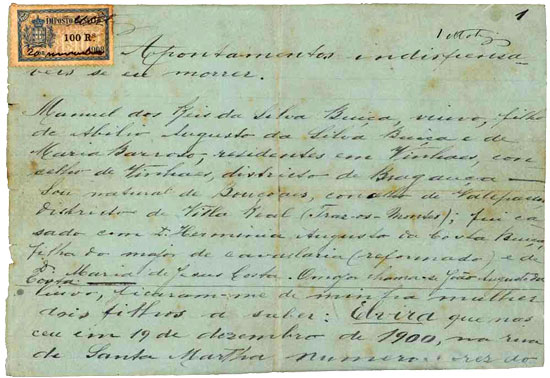 1
IMPOSTO
100 Rs.
Apontamentos indispensa-
veis se eu morrer.
Manuel dos Reis da Silva Buiça, viuvo, filho
de Abilio Augusto da Silva Buiça e de
Maria Barroso, residentes em Vinhaes, con-
celho de Vinhaes, districto de Bragança
Sou natural de Bouçoais, concelho de Valepassos
districto de Villa Real (Traz-os-Montes); fui ca-
sado com D. Herminia Augusta da Costa Buiça
filha do major de cavallaria (reformado) e de
D. Maria de Jesus Costa. O major chama-se João Augusto da
Costa
viuvo, ficaram-me de minha mulher
dois filhos a saber: Elvira que nas-
ceu em 19 de dezembro de 1900, na rua
de Santa Martha numero